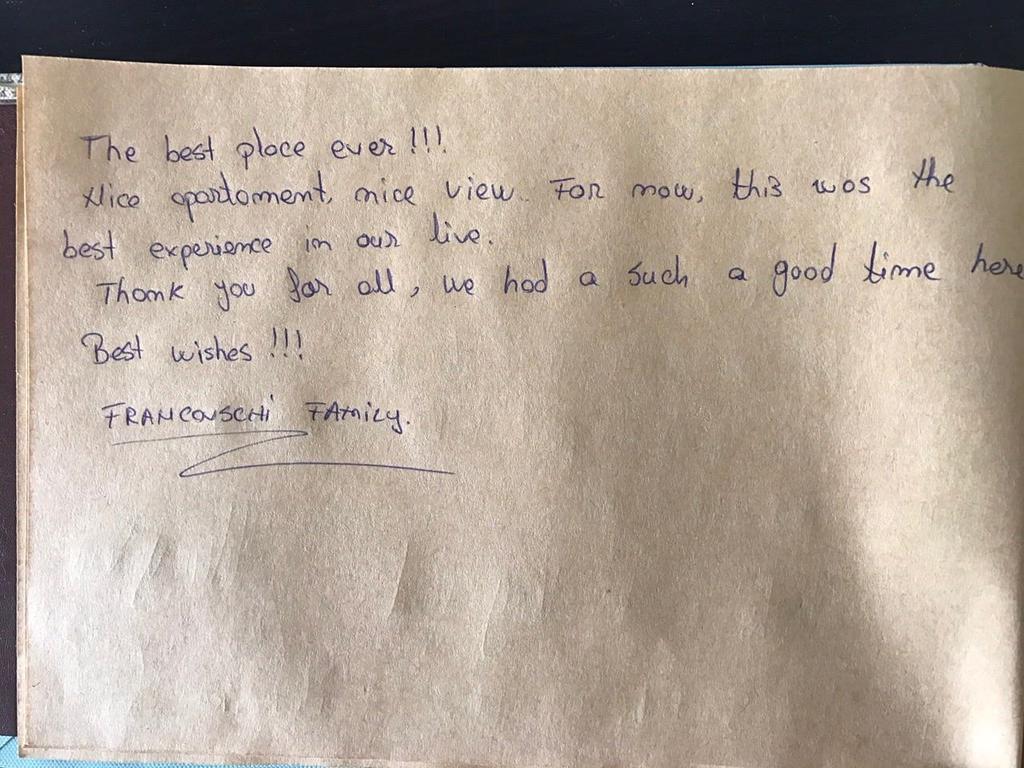 The best place ever !!!
Nice apartament, nice view.. For now, this was the
best experience in our live.
Thank you for all, we had a such a good time here
Best wishes !!!
FRANCOVSCHI FAMILY.